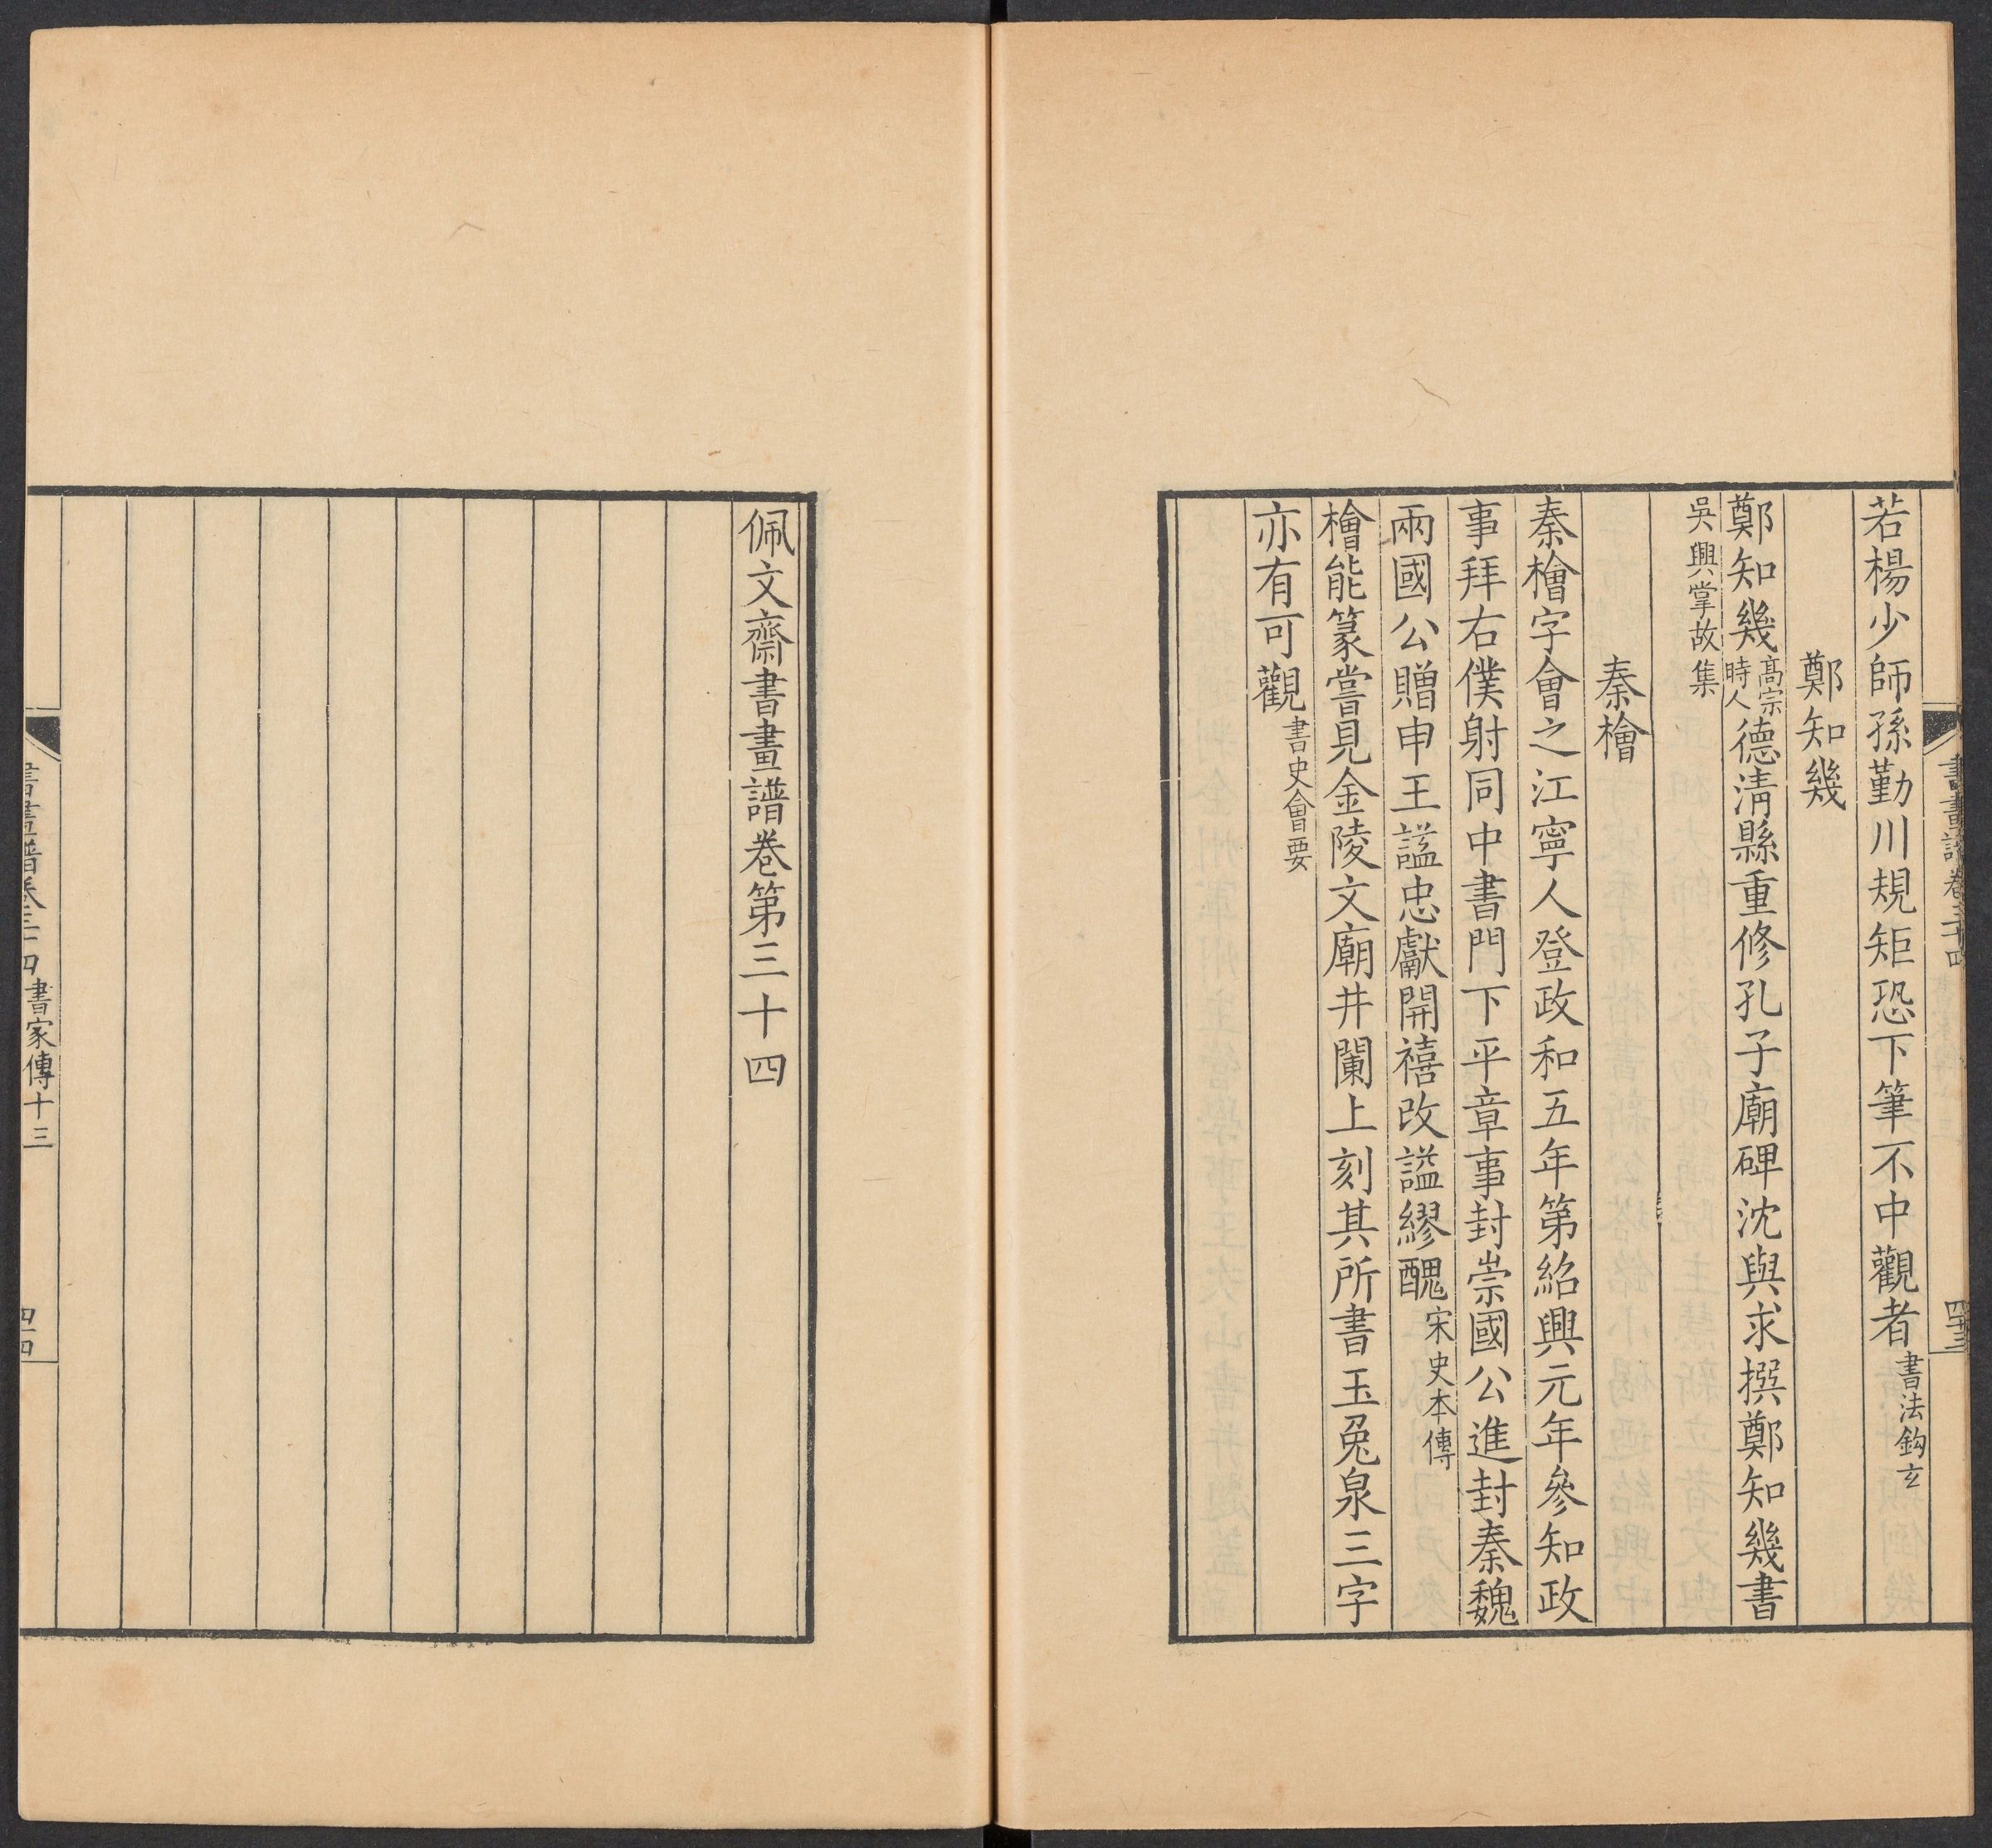 書畫譜卷三十四
四十三
若楊少師孫勤川規矩恐下筆不中觀者書法鈎玄
鄭知幾
鄭知幾高宗時人德淸縣重修孔子廟碑沈與求撰鄭知幾書
吳興掌故集
秦檜
秦檜字會之江寧人登政和五年第紹興元年參知政
事拜右僕射同中書門下平章事封崇國公進封秦魏
兩國公贈申王謚忠獻開禧改謚繆醜宋史本傳
檜能篆嘗見金陵文廟井闌上刻其所書玉兔泉三字
亦有可觀書史會要
佩文齋書畫譜卷第三十四
書畫譜卷三十四 書家傳十三
四十四